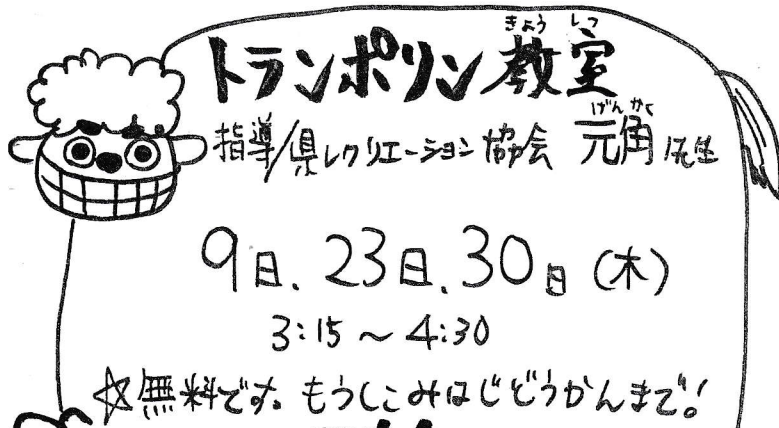 トランポリン教室
きょうしつ
指導/県レクリエーション協会 元角先生
げんかく
9日、23日、30日(木)
3:15～4:30
☆無料です。もうしこみはじどうかんまで!